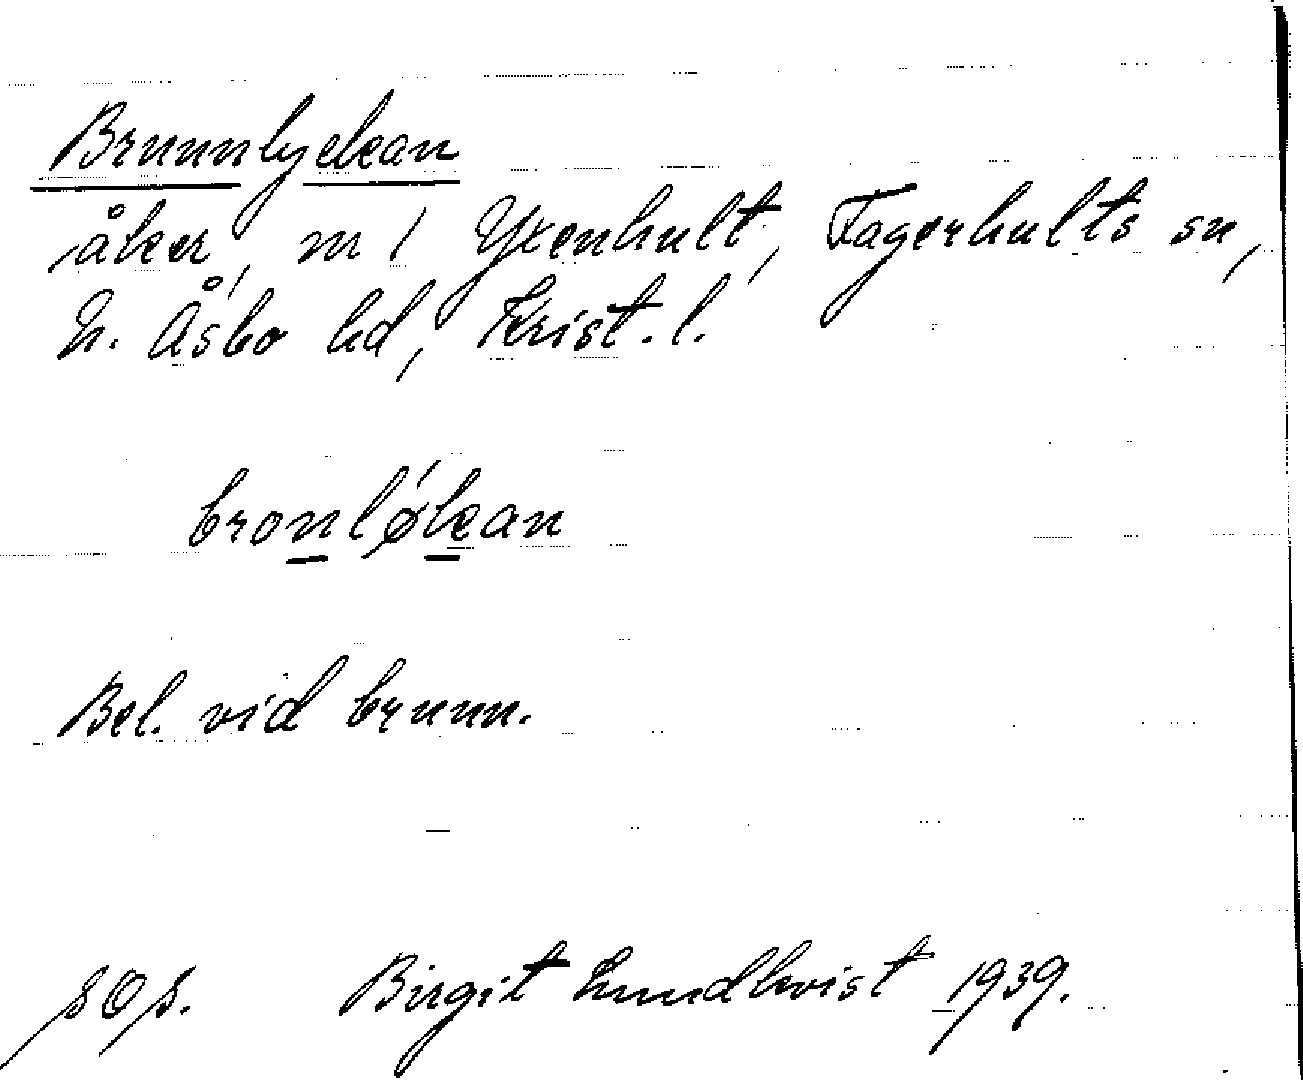 Brunnlyckan
åker, m 1 Yxenhult, Fagerhults sn,
N. Åsbo hd, Krist. l.
bronløkan
Bel. vid brunn.
Birgit Lundkvist 1939.